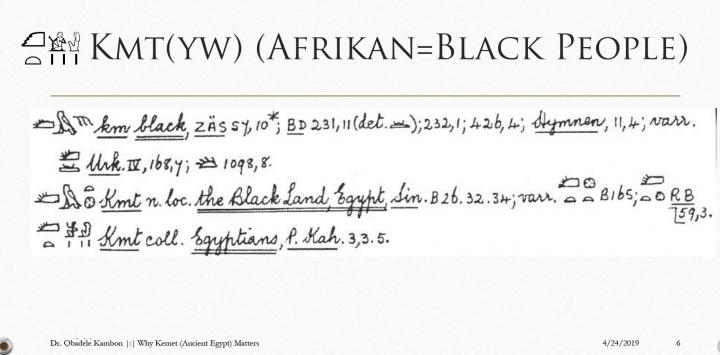 Kmt(yw) (Afrikan=Black People)
km black, ZÄS 57, 10*; BD 231, 11 (det. ); 232, 1; 426, 4; Hymnen, 11, 4; varr.
Urk. IV, 168, 7; 1098, 8.
Kmt n. loc. the Black Land, Egypt, Sin. B26. 32. 34; varr. B165; RB 59, 3.
Kmt coll. Egyptians, P. Kah. 3, 3. 5.
Dr. Ọbádélé Kambon |:| Why Kemet (Ancient Egypt) Matters 4/24/2019 6